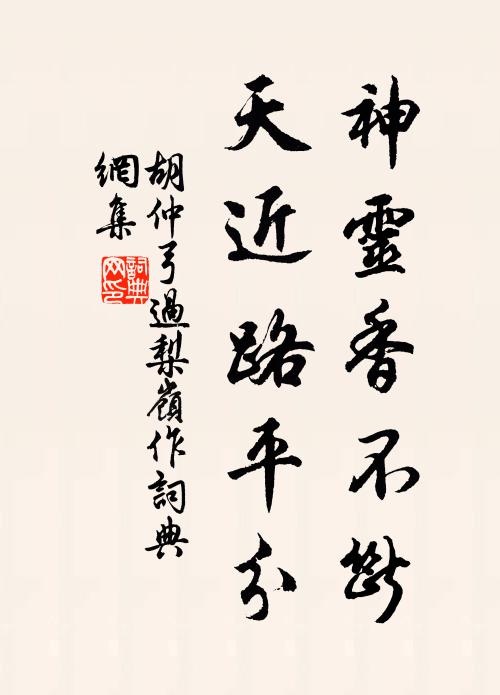 神靈香不斷
天近路平分
胡仲弓過梨嶺作詞典
網集
詞典
网印